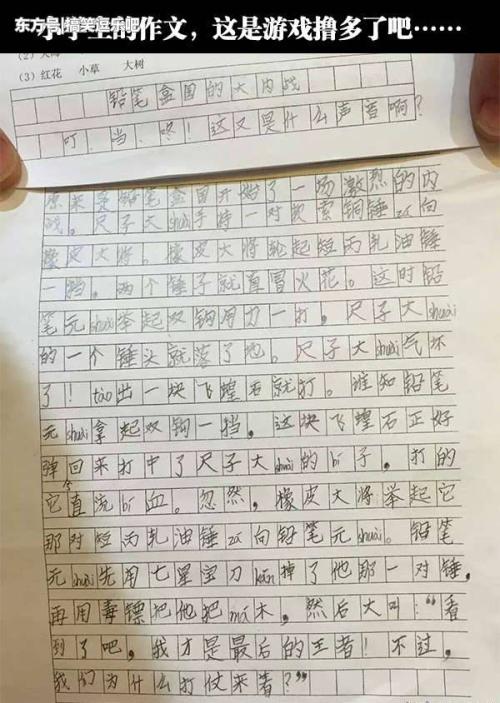 东方号|搞笑逗乐吧
小学生的作文，这是游戏撸多了吧……
(3) 红花 小草 大树
铅笔盒国的大内战
叮、当、咚！这又是什么声音啊？
原来是铅笔盒国开始了一场激烈的内
战。尺子大shuài手持一对 索铜锤zá向
橡皮大将。橡皮大将轮起短丙扎油锤
一挡。两个锤子就直冒火花。这时铅
笔元shuài举起双钩用力一打。尺子大shuài
的一个锤头就落了地。尺子大shuài气坏
了！tāo出一块飞蝗石就打。谁知铅笔
元shuài拿起双钩一挡。这块飞蝗石正好
弹回来打中了尺子大shuài的bí子。打的
它个直流bí血。忽然，橡皮大将举起它
那对短丙扎油锤zá向铅笔元shuài。铅笔
元shuài先用七星宝刀kǎn掉了他那一对锤，
再用毒镖把他把má木。然后大叫：“看
到了吧，我才是最后的王者！不过，
我们为什么打仗来着？”